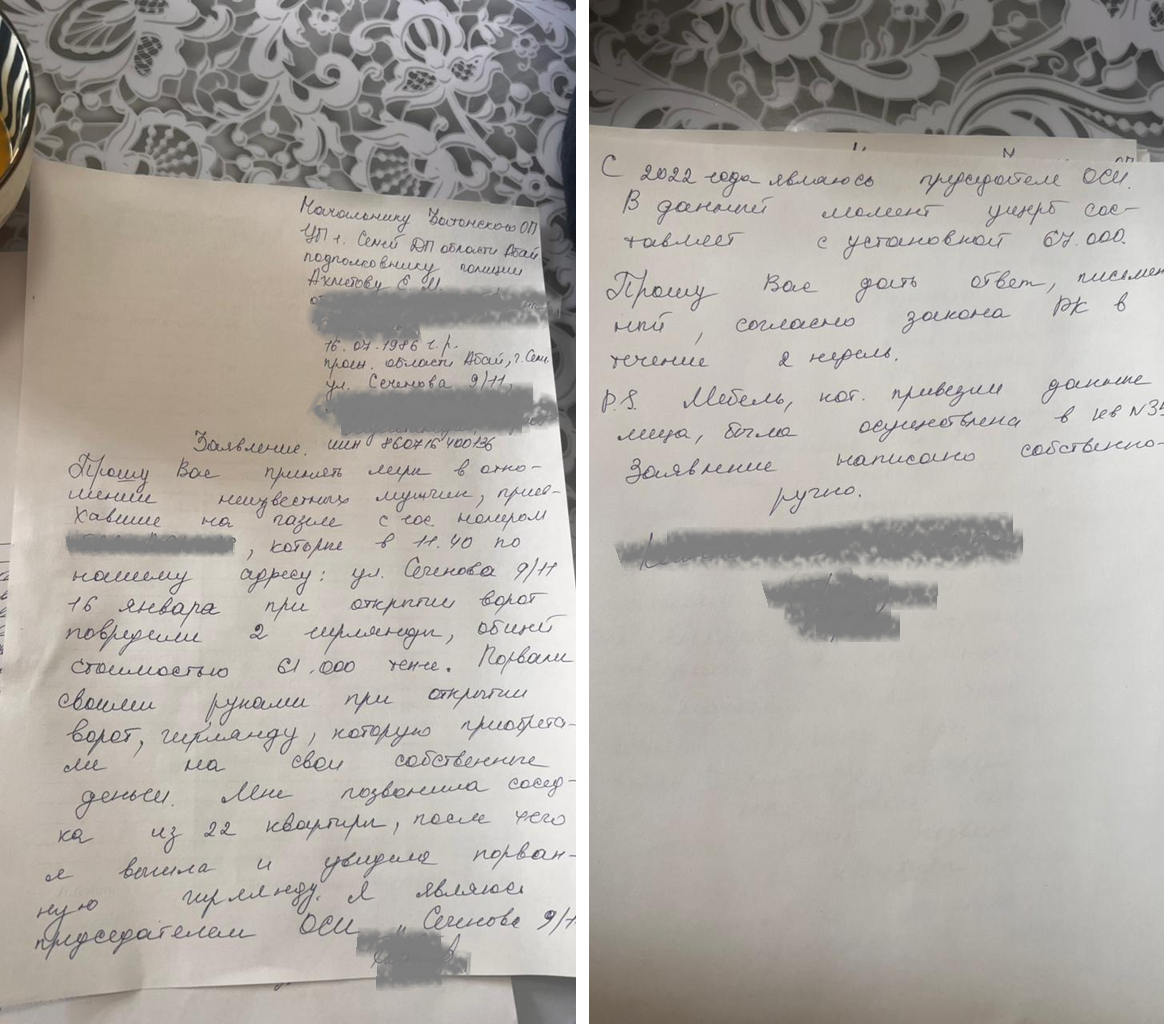 Начальнику Затонского ОП
УП г. Семей ДП области Абай
подполковнику полиции
Ахметову Е М
от
16.07.1986 г.р.
прож. области Абай, г. Семе
ул. Сеченова 9/11,
Заявление. иин 860716400136
Прошу Вас принять меры в отно-
шении неизвестных мужчин, прие-
хавшие на газеле с гос номером
, которые в 11.40 по
нашему адресу: ул. Сеченова 9/11
16 января при открытии ворот
повредили 2 гирлянды, общей
стоимостью 61.000 тенге. Порвали
своими руками при открытии
ворот, гирлянду, которую приобрета-
ли на свои собственные
деньги. Мне позвонила сосед-
ка из 22 квартиры, после чего
я вышла и увидела порван-
ную гирлянду. Я являюсь
председателем ОСИ „Сеченова 9/1
С 2022 года являюсь председателе ОСИ.
В данный момент ущерб сос-
тавляет с установкой 67.000.
Прошу Вас дать ответ, письмен
ный, согласно закона РК в
течение 2 недель.
P.S. Мебель, кот. привезли данные
лица, была осуществлена в кв N35
Заявление написано собственно-
ручно.